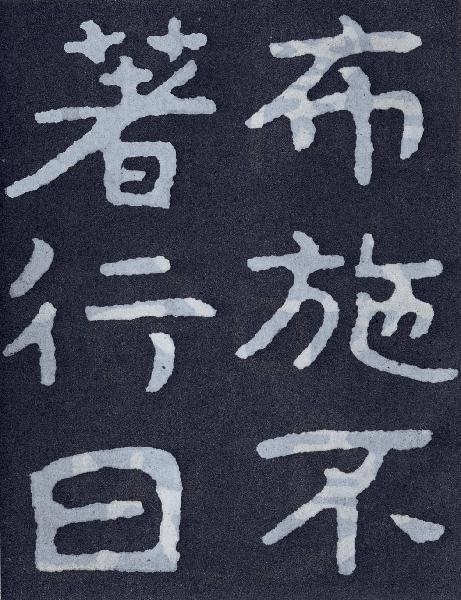 布施不
著行曰